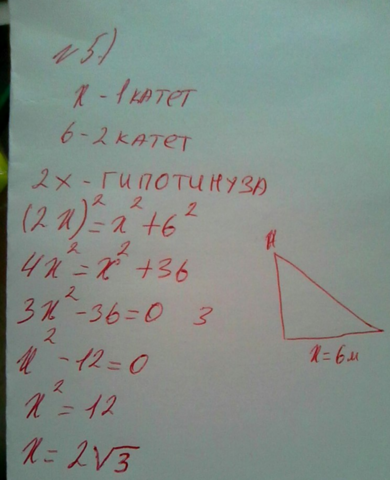 №5)
x - 1 катет
6 - 2 катет
2x - гипотинуза
(2x)² = x² + 6²
4x² = x² + 36
3x² - 36 = 0 3
x² - 12 = 0
x² = 12
x = 2√3
x
x = 6м